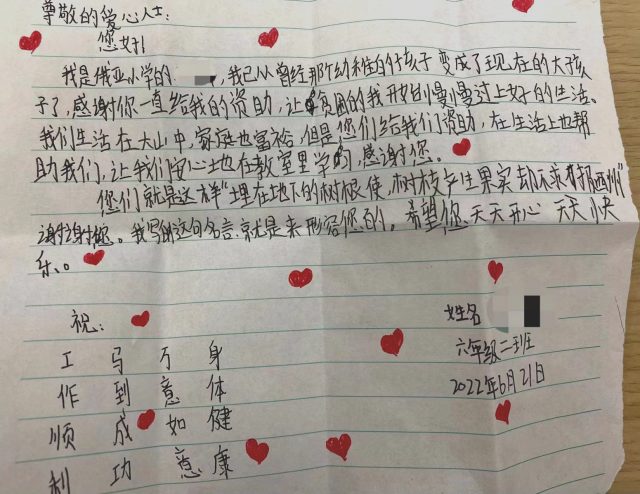 尊敬的爱心人士:
您好!
我是俄亚小学的,我已从曾经那个幼稚的孩子变成了现在的大孩
子了,感谢你一直给我的资助,让贫困的我开始慢慢过上好的生活。
我们生活在大山中,家庭也富裕,但是您们给我们资助,在生活上也帮
助我们,让我们安心地在教室里学习,感谢您。
您们就是这样“埋在地下的树根使,树枝产生果实却不求报酬”
谢谢您。我写的这句名言、就是来形容您的。希望您天天开心 天天快
乐。
祝:
工 马 万 身
作 到 意 体
顺 成 如 健
利 功 意 康
姓名
六年级二班
2022年6月21日